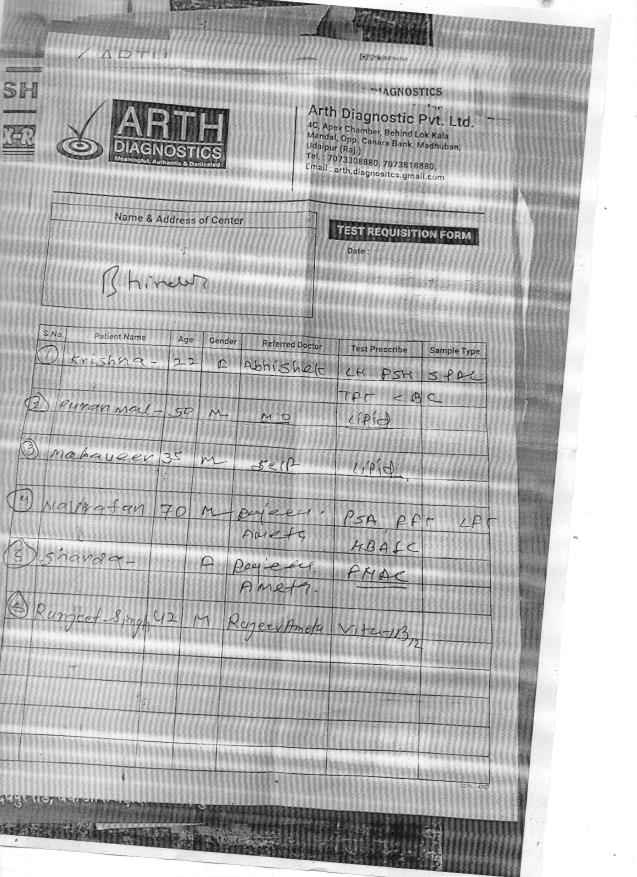 ARTH
SH
X-R
DIAGNOSTICS
ARTH
DIAGNOSTICS
Meaningful, Authentic & Dedicated
Arth Diagnostic Pvt. Ltd.
4C, Apex Chamber, Behind Lok Kala
Mandal, Opp. Canara Bank, Madhuban,
Udaipur (Raj.)
Tel. : 7073308880, 7073818880,
Email : arth.diagnositcs.gmail.com
Name & Address of Center
Bhinder
TEST REQUISITION FORM
Date :
S.No. Patient Name Age Gender Referred Doctor Test Prescribe Sample Type
1 Krishna - 22 Abhishek LH
2 Puranmal - 50 M MD Lipid
3 Mahaveer 35 M self Lipid
4 Navratan 70 M Rajeev PSA
Ameta HBA1C
5 Sharda - Rajeev
Ameta.
6 Ranjeet Singh 42 M Rajeev Ameta Vitu-B12